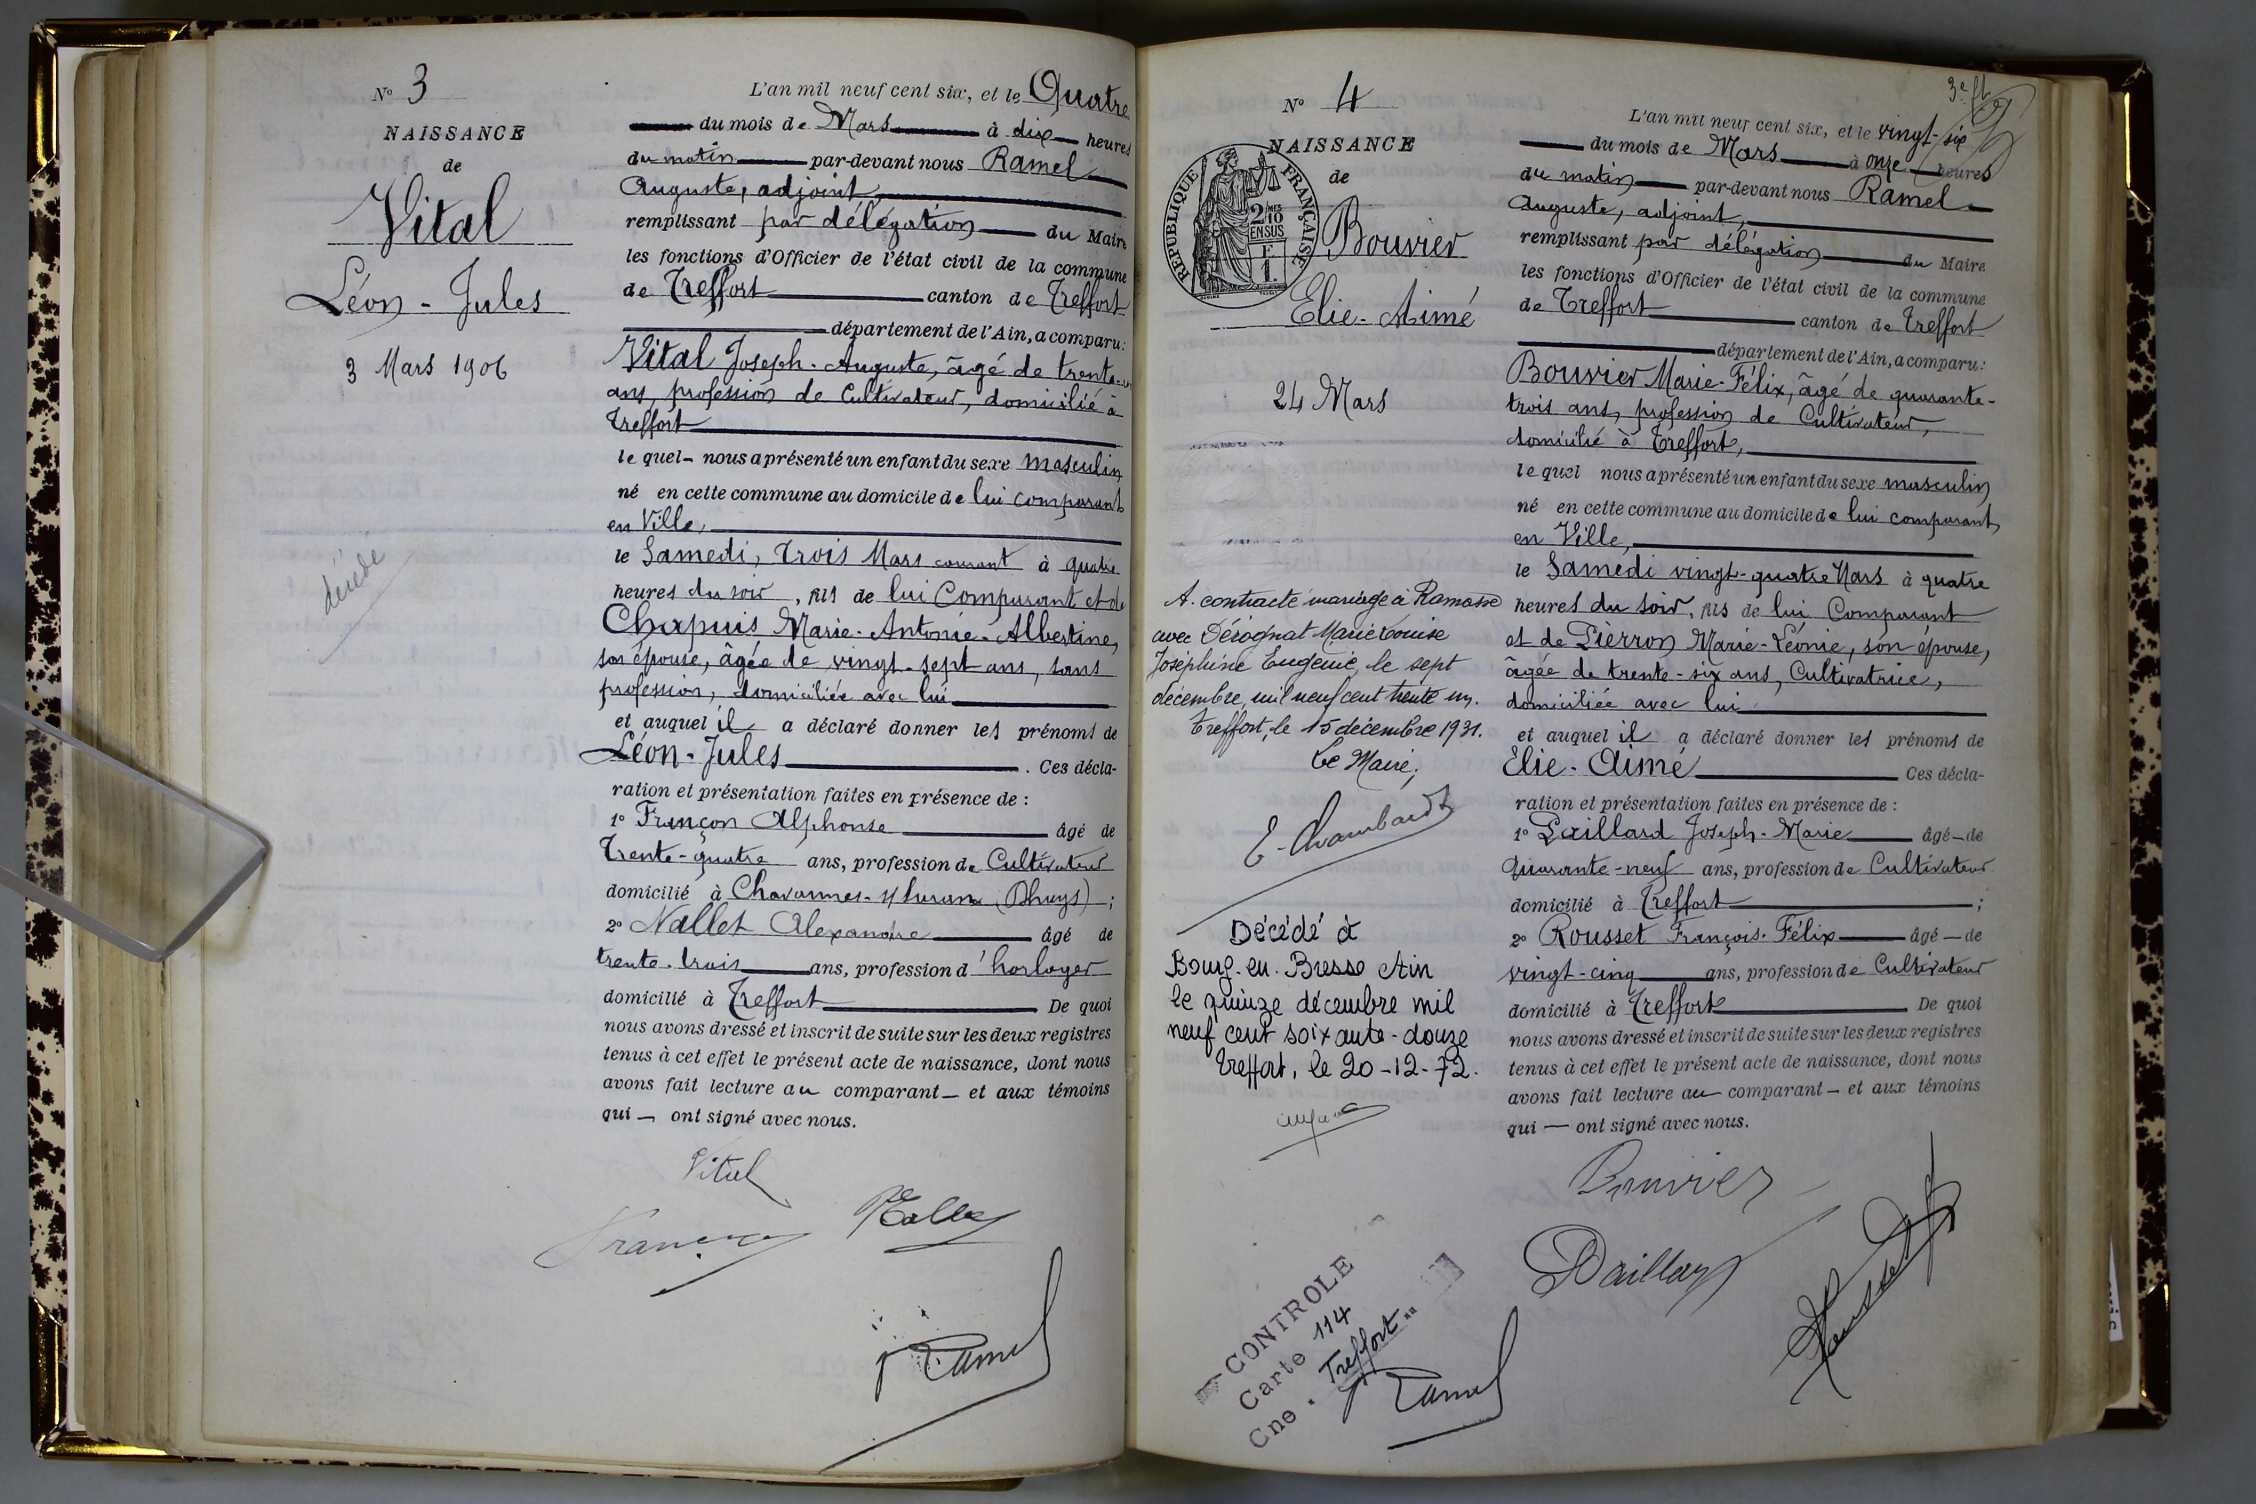 N° 3
NAISSANCE
de
Vital
Léon - Jules
3 Mars 1906
décédé
L'an mil neuf cent six, et le Quatre
du mois de Mars à dix heures
du matin par-devant nous Ramel
Auguste, adjoint,
remplissant par délégation du Maire
les fonctions d'Officier de l'état civil de la commune
de Treffort canton de Treffort
département de l'Ain, a comparu:
Vital Joseph-Auguste, âgé de trente-un
ans, profession de Cultivateur, domicilié à
Treffort
lequel nous a présenté un enfant du sexe masculin
né en cette commune au domicile de lui comparant
en Ville,
le Samedi, Trois Mars courant à quatre
heures du soir, fils de lui Comparant et de
Chapuis Marie-Antonie-Albertine,
son épouse, âgée de vingt-sept ans, sans
profession, domiciliée avec lui
et auquel il a déclaré donner les prénoms de
Léon-Jules . Ces décla-
ration et présentation faites en présence de :
1° Françon Alphonse âgé de
Trente-quatre ans, profession de Cultivateur
domicilié à Chavannes-s/Suran (Dhuys) ;
2° Nallet Alexandre âgé de
trente-trois ans, profession d'horloger
domicilié à Treffort De quoi
nous avons dressé et inscrit de suite sur les deux registres
tenus à cet effet le présent acte de naissance, dont nous
avons fait lecture au comparant et aux témoins
qui ont signé avec nous.
Vital
Françon Nallet
Ramel
N° 4
NAISSANCE
de
RÉPUBLIQUE FRANÇAISE
2/10
EN SUS
F
1
Bouvier
Elie-Aimé
24 Mars
A contracté mariage à Ramasse
avec Désognat Marie Louise
Joséphine Eugénie le sept
décembre mil neuf cent trente un.
Treffort, le 15 décembre 1931.
Le Maire,
E. Chambard
Décédé à
Bourg-en-Bresse Ain
le quinze décembre mil
neuf cent soixante-douze
Treffort, le 20-12-72.
CONTROLE
Carte 114
Cne. Treffort
3e ft
L'an mil neuf cent six, et le vingt-six
du mois de Mars à onze heures
du matin par-devant nous Ramel
Auguste, adjoint,
remplissant par délégation du Maire
les fonctions d'Officier de l'état civil de la commune
de Treffort canton de Treffort
département de l'Ain, a comparu:
Bouvier Marie-Félix, âgé de quarante-
trois ans, profession de Cultivateur,
domicilié à Treffort,
lequel nous a présenté un enfant du sexe masculin
né en cette commune au domicile de lui comparant,
en Ville,
le Samedi vingt-quatre Mars à quatre
heures du soir, fils de lui Comparant
et de Pierron Marie-Léonie, son épouse,
âgée de trente-six ans, Cultivatrice,
domiciliée avec lui
et auquel il a déclaré donner les prénoms de
Elie-Aimé Ces décla-
ration et présentation faites en présence de :
1° Paillard Joseph-Marie âgé de
Quarante-neuf ans, profession de Cultivateur
domicilié à Treffort ;
2° Rousset François-Félix âgé de
vingt-cinq ans, profession de Cultivateur
domicilié à Treffort De quoi
nous avons dressé et inscrit de suite sur les deux registres
tenus à cet effet le présent acte de naissance, dont nous
avons fait lecture au comparant et aux témoins
qui ont signé avec nous.
Bouvier
Paillard Rousset
Ramel